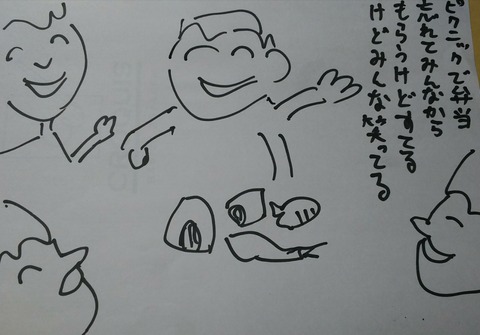 ピクニックで弁当
忘れてみんなから
もらうけどすてる
けどみんな笑ってる